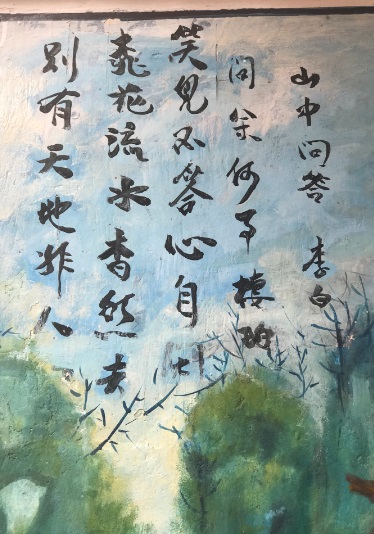 山中问答 李白
问余何事棲碧
笑而不答心自
桃花流水杳然去
别有天地非人